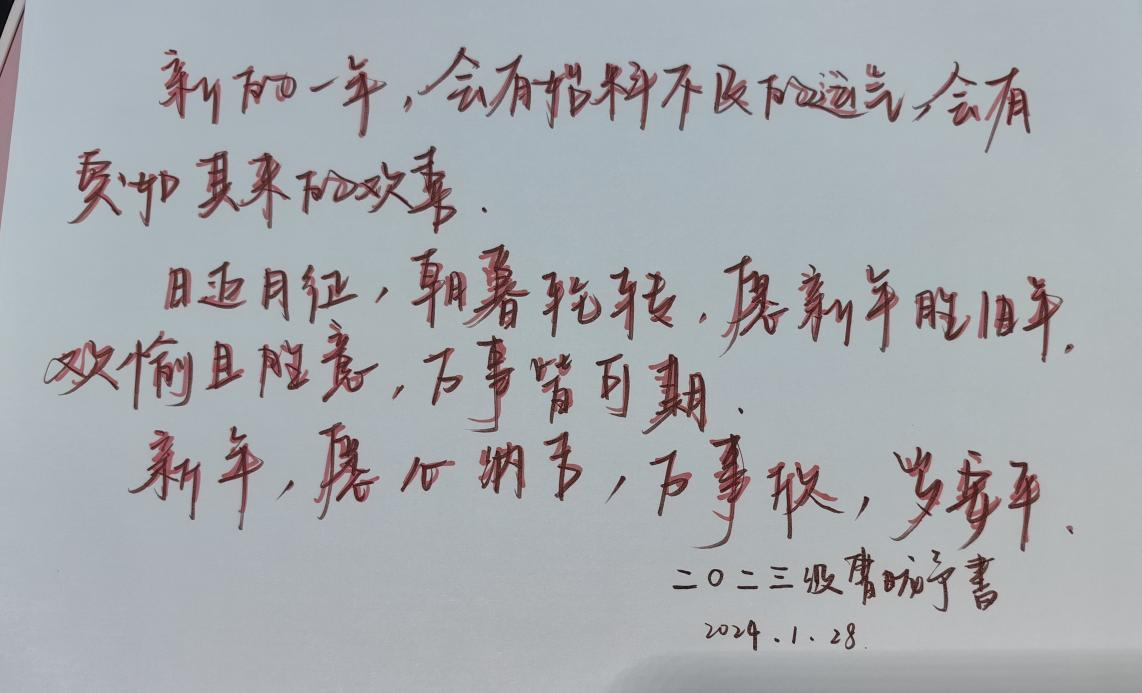 新的一年，会有措料不及的运气，会有
突如其来的欢喜.
日迈月征，朝暮轮转，愿新年胜旧年.
欢愉且胜意，万事皆可期.
新年，愿心纳下，万事，岁安平、
二〇二三级予書
2024.1.28.